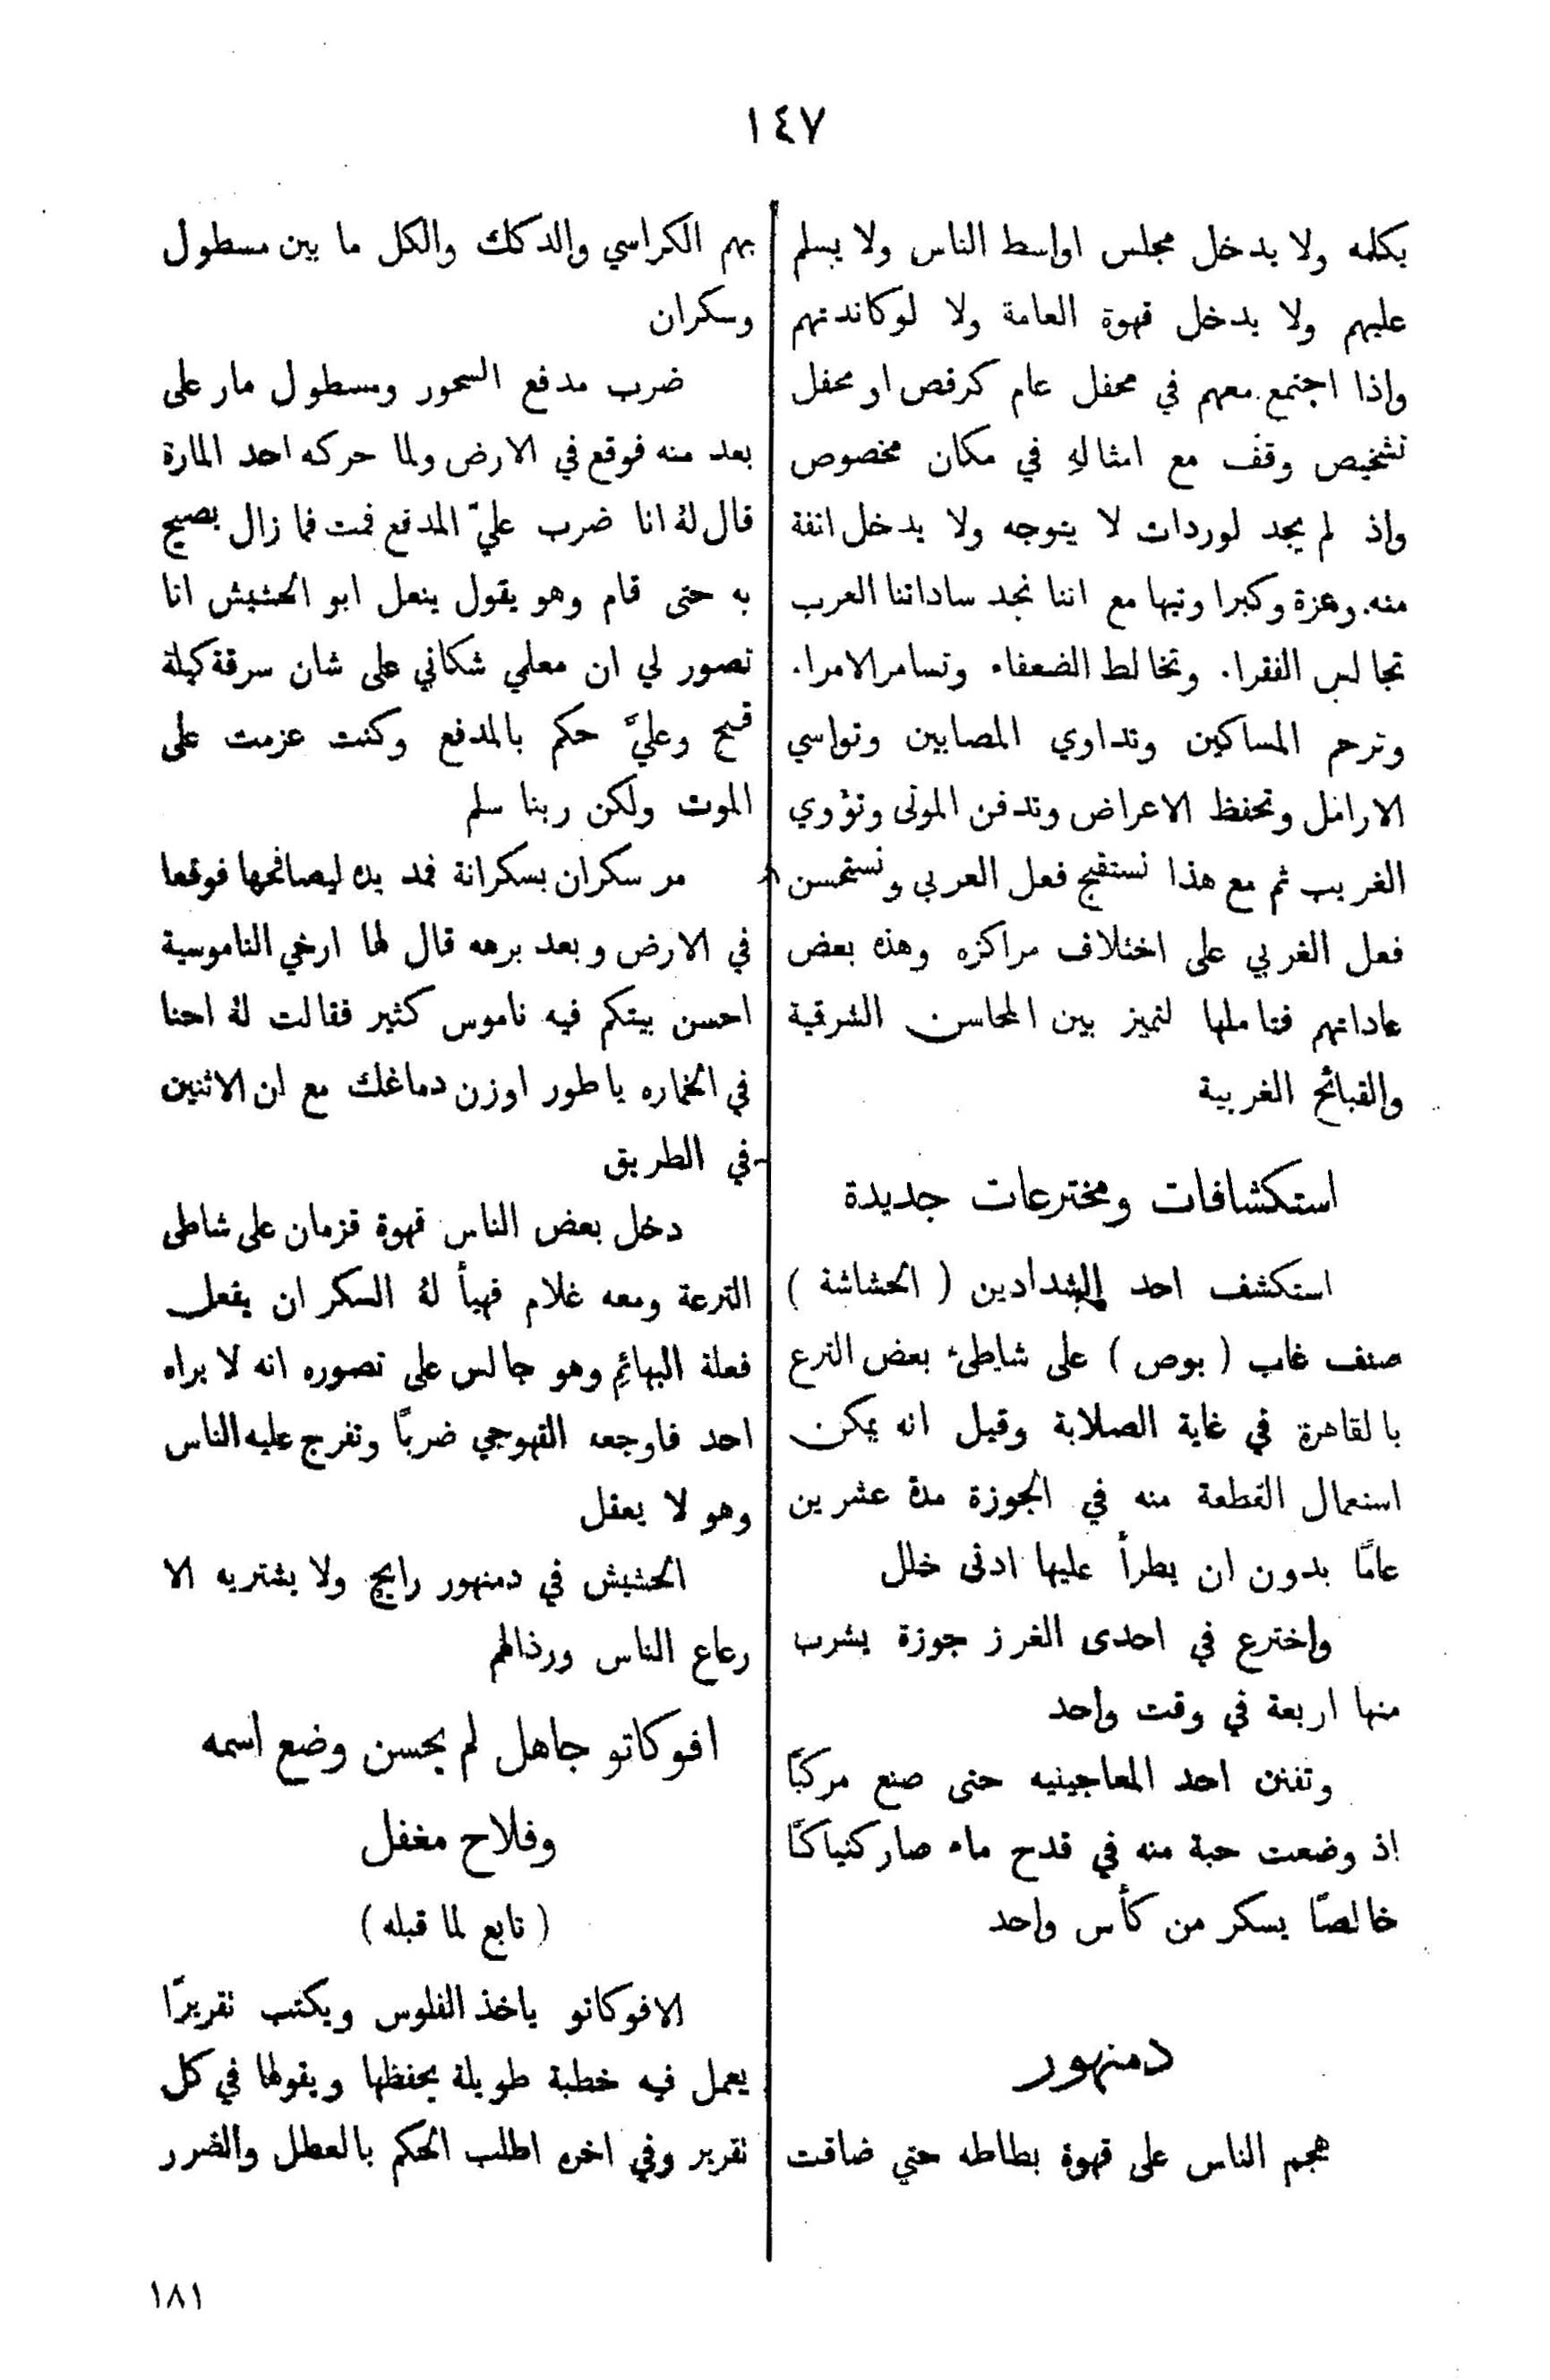 ١٤٧
يكلمه ولا يدخل مجلس اواسط الناس ولا يسلم
عليهم ولا يدخل قهوة العامة ولا لوكاندتهم
واذا اجتمع معهم في محفل عام كرقص او محفل
تشخيص وقف مع امثالهِ في مكان مخصوص
واذ لم يجد لوردات لا يتوجه ولا يدخل انفة
منه وعزة وكبرا وتيها مع اننا نجد ساداتنا العرب
تجالس الفقراء وتخالط الضعفاء وتسامر الامراء
وترحم المساكين وتداوي المصابين وتواسي
الارامل وتحفظ الاعراض وتدفن الموتى وتؤوي
الغريب ثم مع هذا نستقبح فعل العربي ونستحسن
فعل الغربي على اختلاف مراكزه وهذه بعض
عاداتهم فتاملها لتميز بين المحاسن الشرقية
والقبائح الغربية
استكشافات ومخترعات جديدة
استكشف احد الشدادين ( الحشاشة )
صنف غاب ( بوص ) على شاطىء بعض الترع
بالقاهرة في غاية الصلابة وقيل انه يمكن
استعمال القطعة منه في الجوزة مدة عشرين
عامًا بدون ان يطرأ عليها ادنى خلل
واخترع في احدى الغرز جوزة يشرب
منها اربعة في وقت واحد
وتفنن احد المعاجينيه حتى صنع مركبًا
اذ وضعت حبة منه في قدح ماء صار كنياكًا
خالصًا يسكر من كأس واحد
دمنهور
هجم الناس على قهوة بطاطه حتي ضاقت
بهم الكراسي والدكك والكل ما بين مسطول
وسكران
ضرب مدفع السحور ومسطول مار على
بعد منه فوقع في الارض ولما حركه احد المارة
قال لهُ انا ضرب عليّ المدفع فمت فما زال يصيح
به حتى قام وهو يقول ينعل ابو الحشيش انا
تصور لي ان معلمي شكاني على شان سرقة كيلة
قمح وعليّ حكم بالمدفع وكنت عزمت على
الموت ولكن ربنا سلم
مر سكران بسكرانة فمد يده ليصافحها فوقعا
في الارض وبعد برهه قال لها ارخي الناموسية
احسن بيتكم فيه ناموس كثير فقالت لهُ احنا
في الخماره يا طور اوزن دماغك مع ان الاثنين
في الطريق
دخل بعض الناس قهوة قزمان على شاطى
الترعة ومعه غلام فهيأ لهُ السكر ان يفعل
فعلة البهائم وهو جالس على تصوره انه لا يراه
احد فاوجعه القهوجي ضربًا وتفرج عليه الناس
وهو لا يعقل
الحشيش في دمنهور رايج ولا يشتريه الا
رعاع الناس ورذالهم
افوكاتو جاهل لم يحسن وضع اسمه
وفلاح مغفل
( تابع لما قبله )
الافوكاتو ياخذ الفلوس ويكتب تقريرًا
يعمل فيه خطبة طويلة يحفظها ويقولها في كل
تقرير وفي اخره اطلب الحكم بالعطل والضرر
١٨١